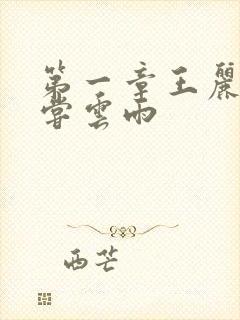 第一章王麗
嘗雲雨
西芒